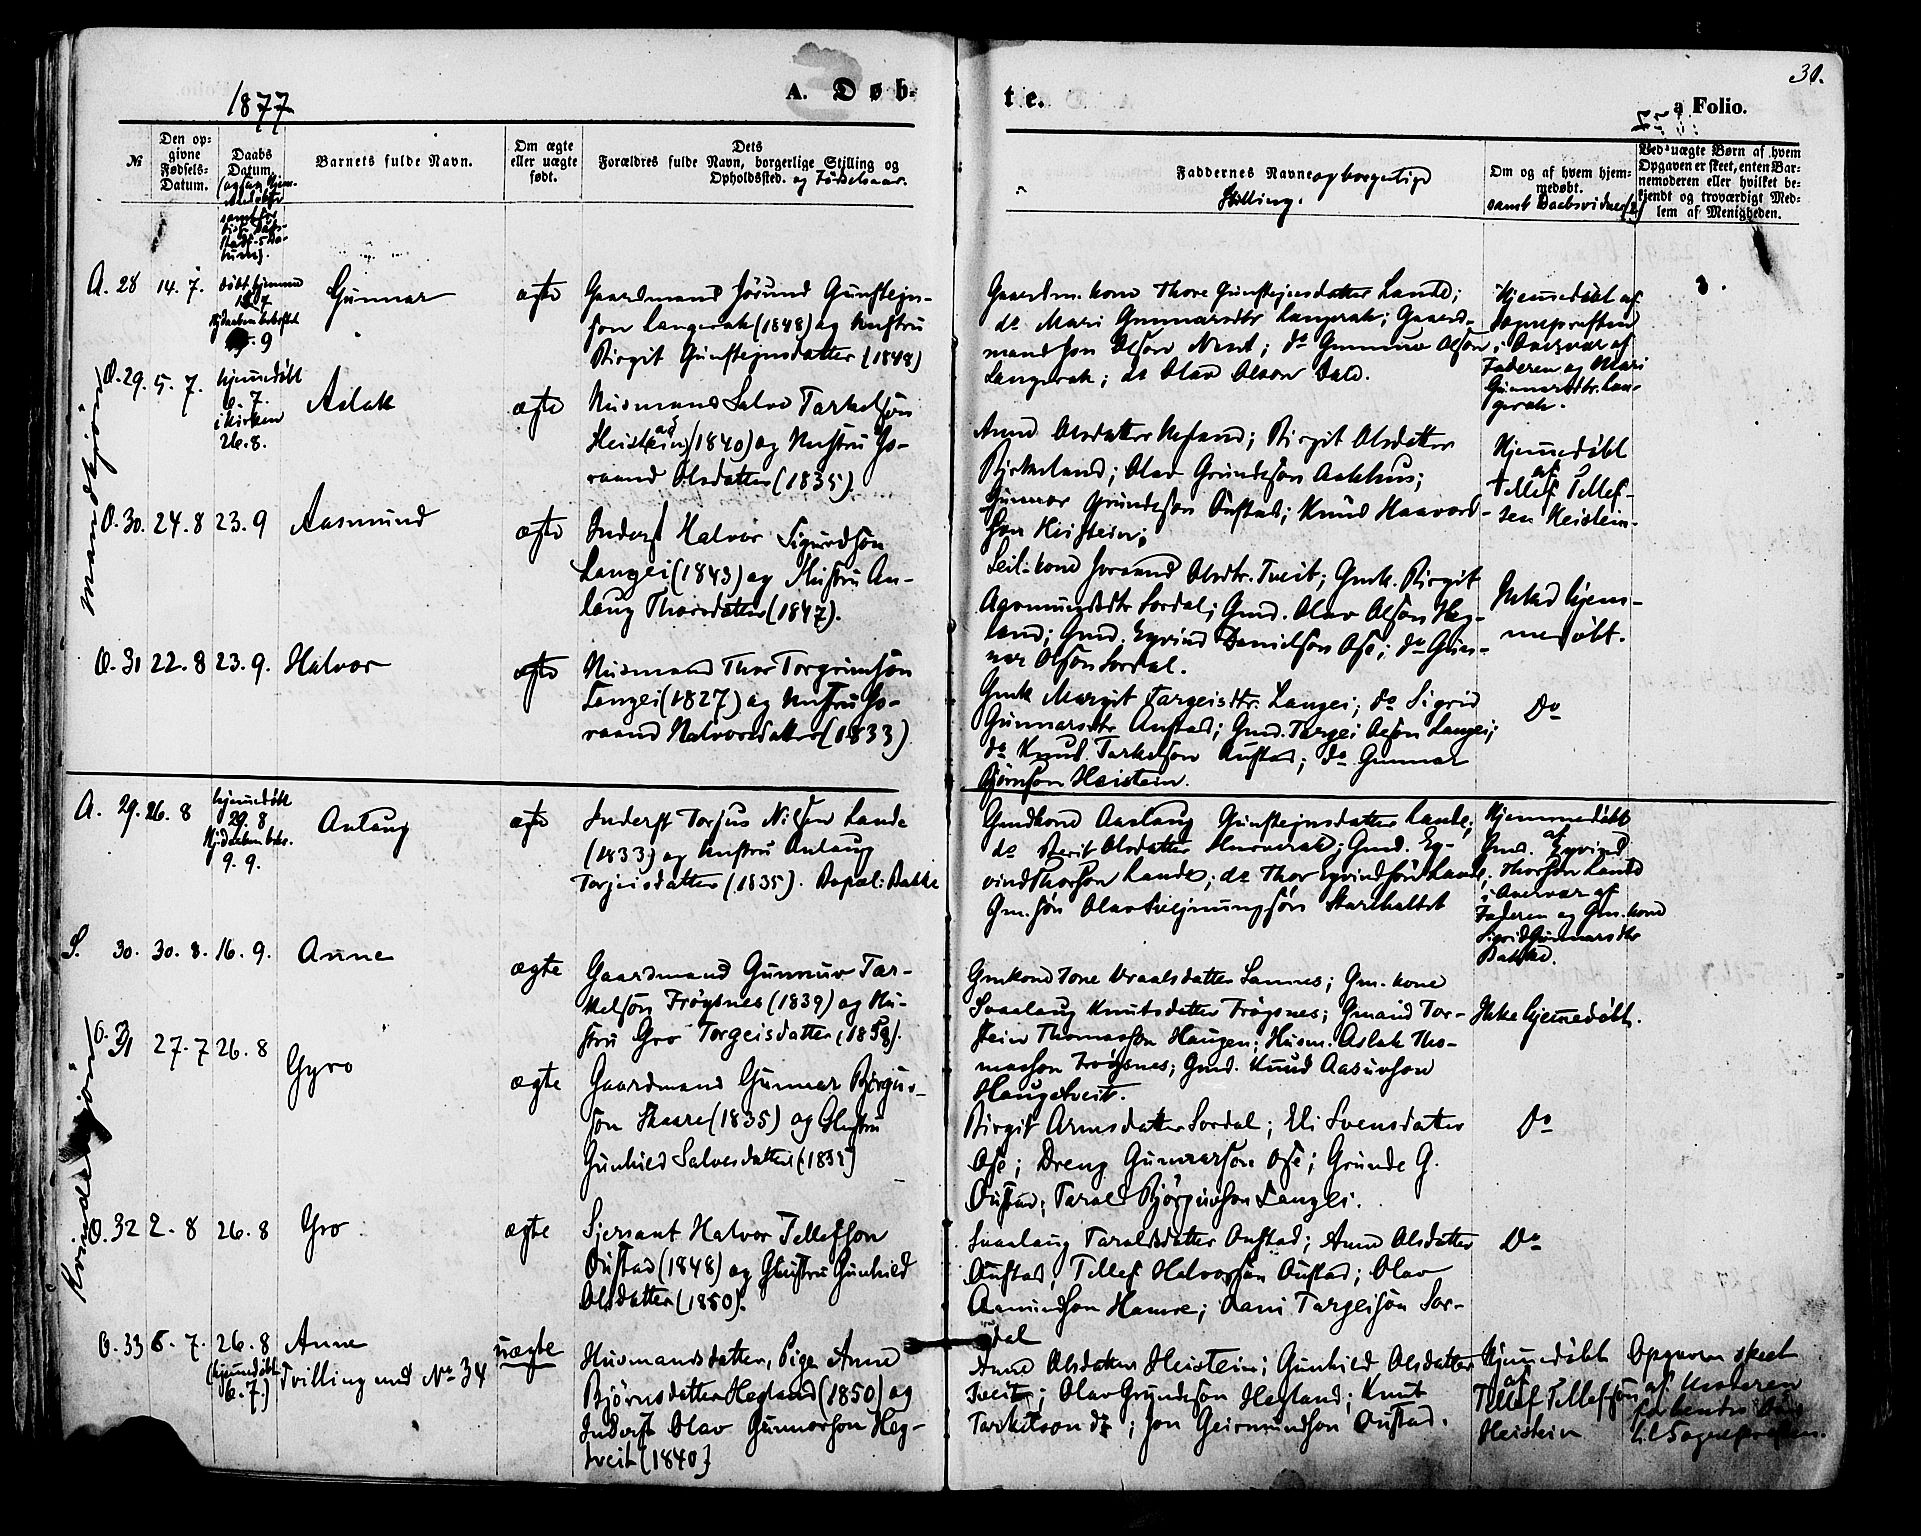 1877
A. Døb-
te.
31.
a Folio.
№
Den op-
givne
Fødsels-
Datum.
Daabs
Datum.
Barnets fulde Navn.
Om ægte
eller uægte
født.
Dets
Forældres fulde Navn, borgerlige Stilling og
Opholdssted. og Fødselsaar.
Faddernes Navne og borgerlige
Stilling.
Om og af hvem hjem-
medøbt.
samt Daabsvidner
Ved uægte Børn af hvem
Opgaven er skeet, enten Bar-
nemoderen eller hvilket be-
kjendt og troværdigt Med-
lem af Menigheden.
Mandkjøn
A. 28 14. 7. Gunnar ægte
Gaardmand Jórund Gunsteins-
son Langerak (1848) og Hustru
Birgit Gunsteinsdatter (1848)
Gaardm. kone Thore Gunsteinsdatter Lande;
do Mari Gunnarsdtr Langerak; Gaard-
mand Jon Olson Neset; do Gunnuv Olson
Langerak; do Olav Olson Dale.
Hjemmedøbt af
Sognepresten
i Overvær af
Faderen og Mari
Gunnarsdtr. Lan-
gerak.
O. 29. 5. 7. hjemmedøbt
6. 7.
i kirken
26. 8.
Aslak ægte
Husmand Salve Tarkelson
Heistein (1840) og Hustru Jo-
raand Olsdatter (1835).
Anne Olsdatter Hegland; Birgit Olsdatter
Birkeland; Olav Grundeson Aakhus;
Gunnar Grundeson Oustad; Knud Haavard-
son Heistein;
Hjemmedøbt
af
Tellef Tellef-
sen Heistein.
O. 30. 24. 8 23. 9 Aasmund ægte
Inderst Halvor Sigurdson
Langei (1843) og Hustru An-
laug Thorsdatter (1847).
Leil. kone Joraand Olsdtr. Tveit; Gmk. Birgit
Aasmundsdtr Sordal; Gmd. Olav Olson Heg-
land; Gmd. Eyvind Danielson Ose; do Gun-
nar Olson Sordal.
Ikke hjem-
medøbt.
O. 31 22. 8 23. 9. Halvor ægte
Husmand Thor Torgrimson
Langei (1827) og Hustru Jo-
raand Halvorsdatter (1833)
Gmk Margit Targeisdtr. Langei; do Sigrid
Gunnarsdtr Oustad; Gmd. Targei Olson Langei;
do Knud Tarkelson Oustad; do Gunnar
Bjørnson Heistein.
Do
A. 29. 26. 8 hjemmedøbt
29. 8
9. 9.
Anlaug ægte
Inderst Torjus Nilsen Lande
(1833) og Hustru Anlaug
Torjeisdatter (1835). Bopæl: Bakke
Gmdkone Aaslaug Gunsteinsdatter Lande;
do Berit Olsdatter Husverak; Gmd. Ey-
vind Thorson Lande; do Thor Eyvindson Lande;
Gm. søn Olav Sveinungson Skarehaltet
Hjemmedøbt
af
Gmd. Eyvind
Thorson Lande
i Overvær af
Faderen og Gm. kone
Sigrid Gunnarsdtr
Bakke.
Kvindekjøn
S. 30. 30. 8. 16. 9. Anne ægte
Gaardmand Gunnuv Tar-
kelson Frøysnes (1839) og Hu-
stru Gro Torgeisdatter (1858).
Gmkone Tone Vraalsdatter Sannes; Gm. kone
Svaalaug Knutsdatter Frøysnes; Gmand Tor-
stein Thomasson Haugen; Husm. Aslak Tho-
masson Frøysnes; Gmd. Knud Aasuvson
Haugetveit.
Ikke hjemmedøbt.
O. 31 27. 7 26. 8 Gyro ægte
Gaardmand Gunnar Bjørgu-
son Skaare (1835) og Hustru
Gunhild Salvesdatter (1835)
Birgit Arnesdatter Sordal; Eli Svensdatter
Ose; Dreng Gunnarson Ose; Grunde G.
Oustad; Tarald Bjørguvson Langei.
Do
O. 32 2. 8 26. 8 Gro ægte
Sjersant Halvor Tellefson
Oustad (1848) og Hustru Gunhild
Olsdatter (1850).
Svaalaug Taraldsdatter Oustad; Anne Olsdatter
Oustad; Tellef Halvorson Oustad; Olav
Aamundson Hamre; Aani Targeison Sor-
dal
Do
O. 33 6. 7. 26. 8
(hjemmedøbt
6. 7.)
Anne
Tvilling med No 34
uægte
Husmandsdatter, Pige Anne
Bjørnsdatter Hegland (1850) og
Inderst Olav Gunnarson Heg-
tveit (1840)
Anne Olsdatter Heistein; Gunhild Olsdatter
Tveit; Olav Grundeson Hegland; Knut
Tarkelson do; Jon Geirmundson Oustad.
Hjemmedøbt
af
Tellef Tellefson
Heistein
Opgaven skeet
af Moderen
til Sognepresten.